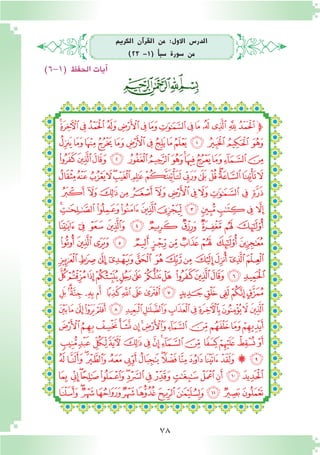 الدرس الاول: من القرآن الكريم
من سورة سبأ (١- ٢٢)
آيات الحفظ (١-٦)
بِسْمِ اللَّهِ الرَّحْمَٰنِ الرَّحِيمِ
﴿ الْحَمْدُ لِلَّهِ الَّذِي لَهُ مَا فِي السَّمَاوَاتِ وَمَا فِي الْأَرْضِ وَلَهُ الْحَمْدُ فِي الْآخِرَةِ
وَهُوَ الْحَكِيمُ الْخَبِيرُ ١ يَعْلَمُ مَا يَلِجُ فِي الْأَرْضِ وَمَا يَخْرُجُ مِنْهَا وَمَا يَنزِلُ
مِنَ السَّمَاءِ وَمَا يَعْرُجُ فِيهَا وَهُوَ الرَّحِيمُ الْغَفُورُ ٢ وَقَالَ الَّذِينَ كَفَرُوا
لَا تَأْتِينَا السَّاعَةُ قُلْ بَلَىٰ وَرَبِّي لَتَأْتِيَنَّكُمْ عَالِمِ الْغَيْبِ لَا يَعْزُبُ عَنْهُ مِثْقَالُ
ذَرَّةٍ فِي السَّمَاوَاتِ وَلَا فِي الْأَرْضِ وَلَا أَصْغَرُ مِن ذَٰلِكَ وَلَا أَكْبَرُ
إِلَّا فِي كِتَابٍ مُّبِينٍ ٣ لِّيَجْزِيَ الَّذِينَ آمَنُوا وَعَمِلُوا الصَّالِحَاتِ
أُولَٰئِكَ لَهُم مَّغْفِرَةٌ وَرِزْقٌ كَرِيمٌ ٤ وَالَّذِينَ سَعَوْ فِي آيَاتِنَا
مُعَاجِزِينَ أُولَٰئِكَ لَهُمْ عَذَابٌ مِّن رِّجْزٍ أَلِيمٌ ٥ وَيَرَى الَّذِينَ أُوتُوا
الْعِلْمَ الَّذِي أُنزِلَ إِلَيْكَ مِن رَّبِّكَ هُوَ الْحَقَّ وَيَهْدِي إِلَىٰ صِرَاطِ الْعَزِيزِ
الْحَمِيدِ ٦ وَقَالَ الَّذِينَ كَفَرُوا هَلْ نَدُلُّكُمْ عَلَىٰ رَجُلٍ يُنَبِّئُكُمْ إِذَا مُزِّقْتُمْ كُلَّ
مُمَزَّقٍ إِنَّكُمْ لَفِي خَلْقٍ جَدِيدٍ ٧ أَفْتَرَىٰ عَلَى اللَّهِ كَذِبًا أَم بِهِ جِنَّةٌ بَلِ
الَّذِينَ لَا يُؤْمِنُونَ بِالْآخِرَةِ فِي الْعَذَابِ وَالضَّلَالِ الْبَعِيدِ ٨ أَفَلَمْ يَرَوْا إِلَىٰ مَا بَيْنَ
أَيْدِيهِمْ وَمَا خَلْفَهُم مِّنَ السَّمَاءِ وَالْأَرْضِ إِن نَّشَأْ نَخْسِفْ بِهِمُ الْأَرْضَ
أَوْ نُسْقِطْ عَلَيْهِمْ كِسَفًا مِّنَ السَّمَاءِ إِنَّ فِي ذَٰلِكَ لَآيَةً لِّكُلِّ عَبْدٍ مُّنِيبٍ
٩ ۞ وَلَقَدْ آتَيْنَا دَاوُودَ مِنَّا فَضْلًا يَا جِبَالُ أَوِّبِي مَعَهُ وَالطَّيْرَ وَأَلَنَّا لَهُ
الْحَدِيدَ ١٠ أَنِ اعْمَلْ سَابِغَاتٍ وَقَدِّرْ فِي السَّرْدِ وَاعْمَلُوا صَالِحًا إِنِّي بِمَا
تَعْمَلُونَ بَصِيرٌ ١١ وَلِسُلَيْمَانَ الرِّيحَ غُدُوُّهَا شَهْرٌ وَرَوَاحُهَا شَهْرٌ وَأَسَلْنَا
٧٨